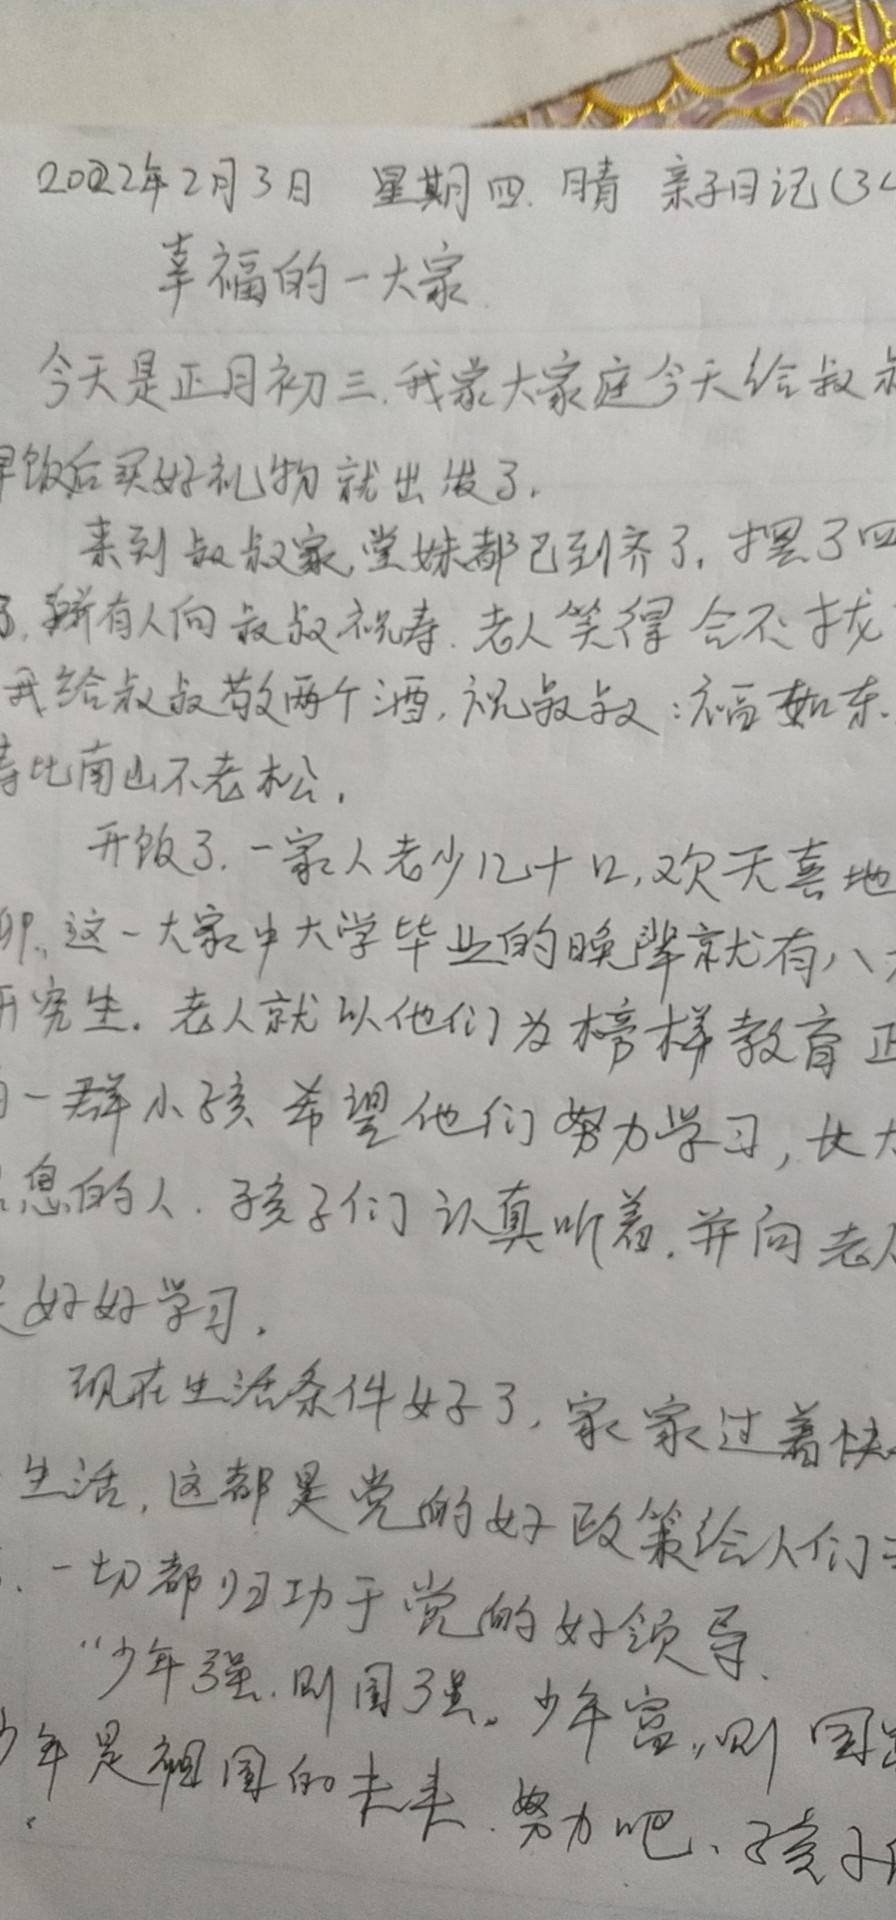 2022年2月3日 星期四 晴 亲子日记(34
幸福的一大家
今天是正月初三.我家大家庭今天给叔叔
早饭后买好礼物就出发了.
来到叔叔家,堂妹都已到齐了,摆了四
了.所有人向叔叔祝寿.老人笑得合不拢
我给叔叔敬两个酒,祝叔叔:福如东
寿比南山不老松.
开饭了.一家人老少几十口,欢天喜地
这一大家中大学毕业的晚辈就有八
研究生.老人就以他们为榜样教育正
的一群小孩 希望他们努力学习,长大
息的人.孩子们认真听着.并向老人
好好学习.
现在生活条件好了,家家过着快
生活,这都是党的好政策给人们
.一切都归功于党的好领导.
“少年强.则国强。少年富,则国
少年是祖国的未来.努力吧、孩子们